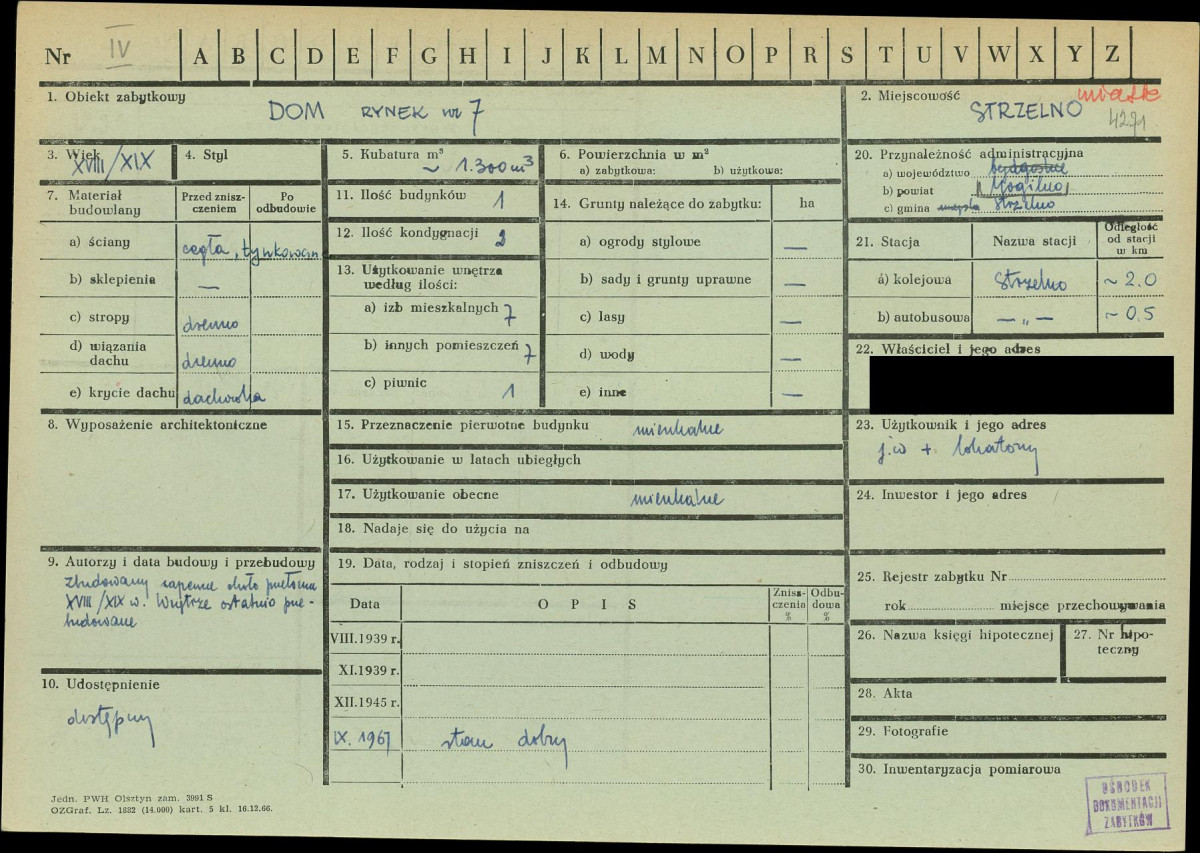 Nr IV A B C D E F G H I J K L M N O P R S T U V W X Y Z
1. Obiekt zabytkowy
DOM RYNEK nr 7
2. Miejscowość miasto
STRZELNO 4291
3. Wiek
XVIII/XIX
4. Styl
5. Kubatura m³
~ 1.300 m³
6. Powierzchnia w m²
a) zabytkowa: b) użytkowa:
20. Przynależność administracyjna
a) województwo bydgoskie
b) powiat Mogilno
c) gmina miasto Strzelno
7. Materiał budowlany
Przed zniszczeniem
Po odbudowie
a) ściany cegła, tynkowan
b) sklepienia —
c) stropy drewno
d) wiązania dachu drewno
e) krycie dachu dachówka
11. Ilość budynków 1
12. Ilość kondygnacji 2
13. Użytkowanie wnętrza
według ilości:
a) izb mieszkalnych 7
b) innych pomieszczeń 7
c) piwnic 1
14. Grunty należące do zabytku: ha
a) ogrody stylowe —
b) sady i grunty uprawne —
c) lasy —
d) wody —
e) inne —
21. Stacja Nazwa stacji Odległość od stacji w km
a) kolejowa Strzelno ~ 2.0
b) autobusowa — „ — ~ 0.5
22. Właściciel i jego adres
8. Wyposażenie architektoniczne
15. Przeznaczenie pierwotne budynku mieszkalne
16. Użytkowanie w latach ubiegłych
17. Użytkowanie obecne mieszkalne
18. Nadaje się do użycia na
23. Użytkownik i jego adres
j.w + lokatorzy
24. Inwestor i jego adres
9. Autorzy i data budowy i przebudowy
Zbudowany zapewne około przełomu
XVIII/XIX w. Wnętrze ostatnio prze-
budowane
10. Udostępnienie
dostępny
19. Data, rodzaj i stopień zniszczeń i odbudowy
Data O P I S Zniszczenia % Odbudowa %
VIII.1939 r.
XI.1939 r.
XII.1945 r.
IX. 1967 stan dobry
25. Rejestr zabytku Nr
rok miejsce przechowywania
26. Nazwa księgi hipotecznej
27. Nr hipoteczny
28. Akta
29. Fotografie
30. Inwentaryzacja pomiarowa
OŚRODEK
DOKUMENTACJI
ZABYTKÓW
Jedn. PWH Olsztyn zam. 3991 S
OZGraf. Lz. 1882 (14.000) kart. 5 kl. 16.12.66.